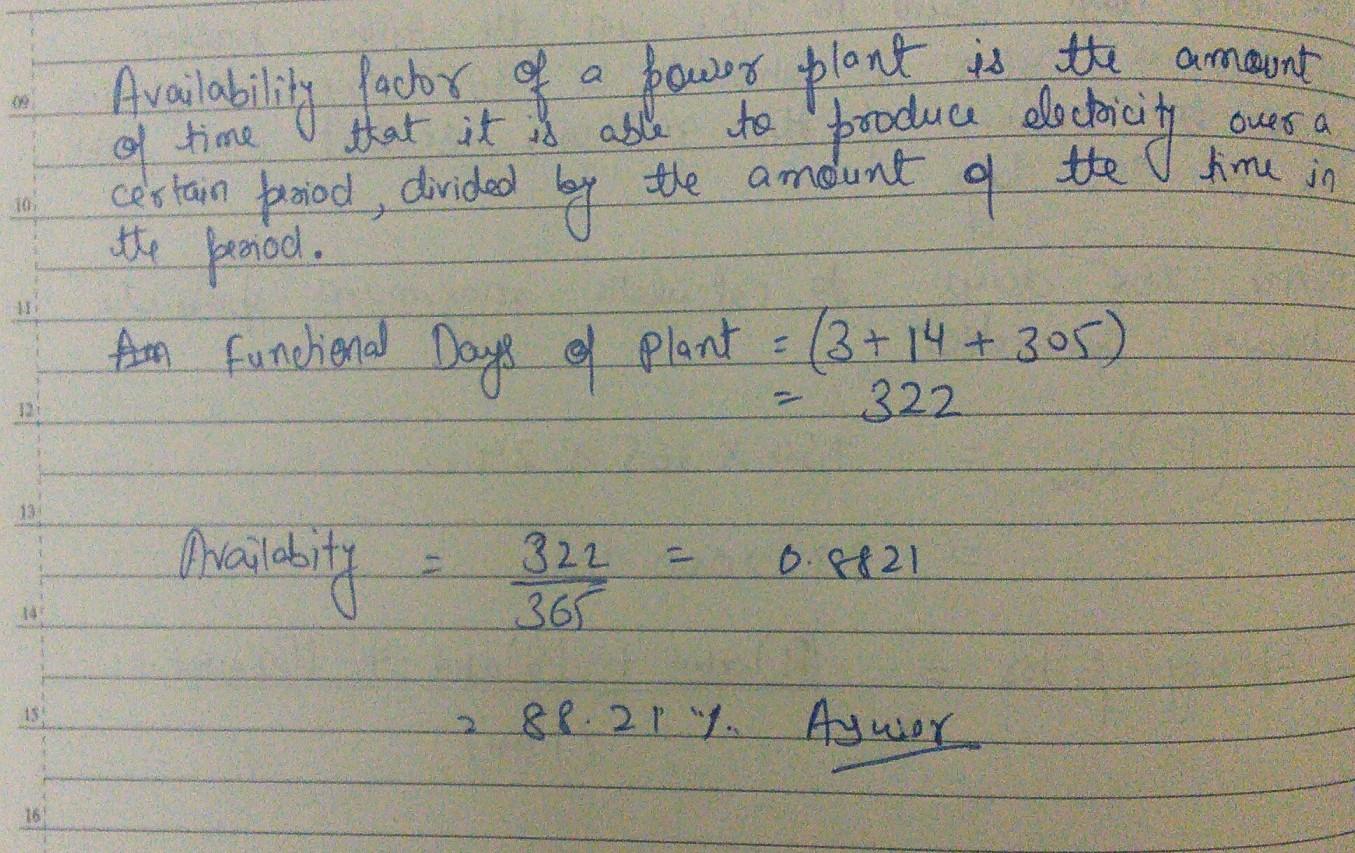 09
Availability factor of a power plant is the amount
of time that it is able to produce electricity over a
10
certain period, divided by the amount of the time in
the period.
11
Functional Days of Plant = (3 + 14 + 305)
= 322
12
13
Availabity = 322 = 0.8821
365
14
15
= 88.21 %. Answer
16